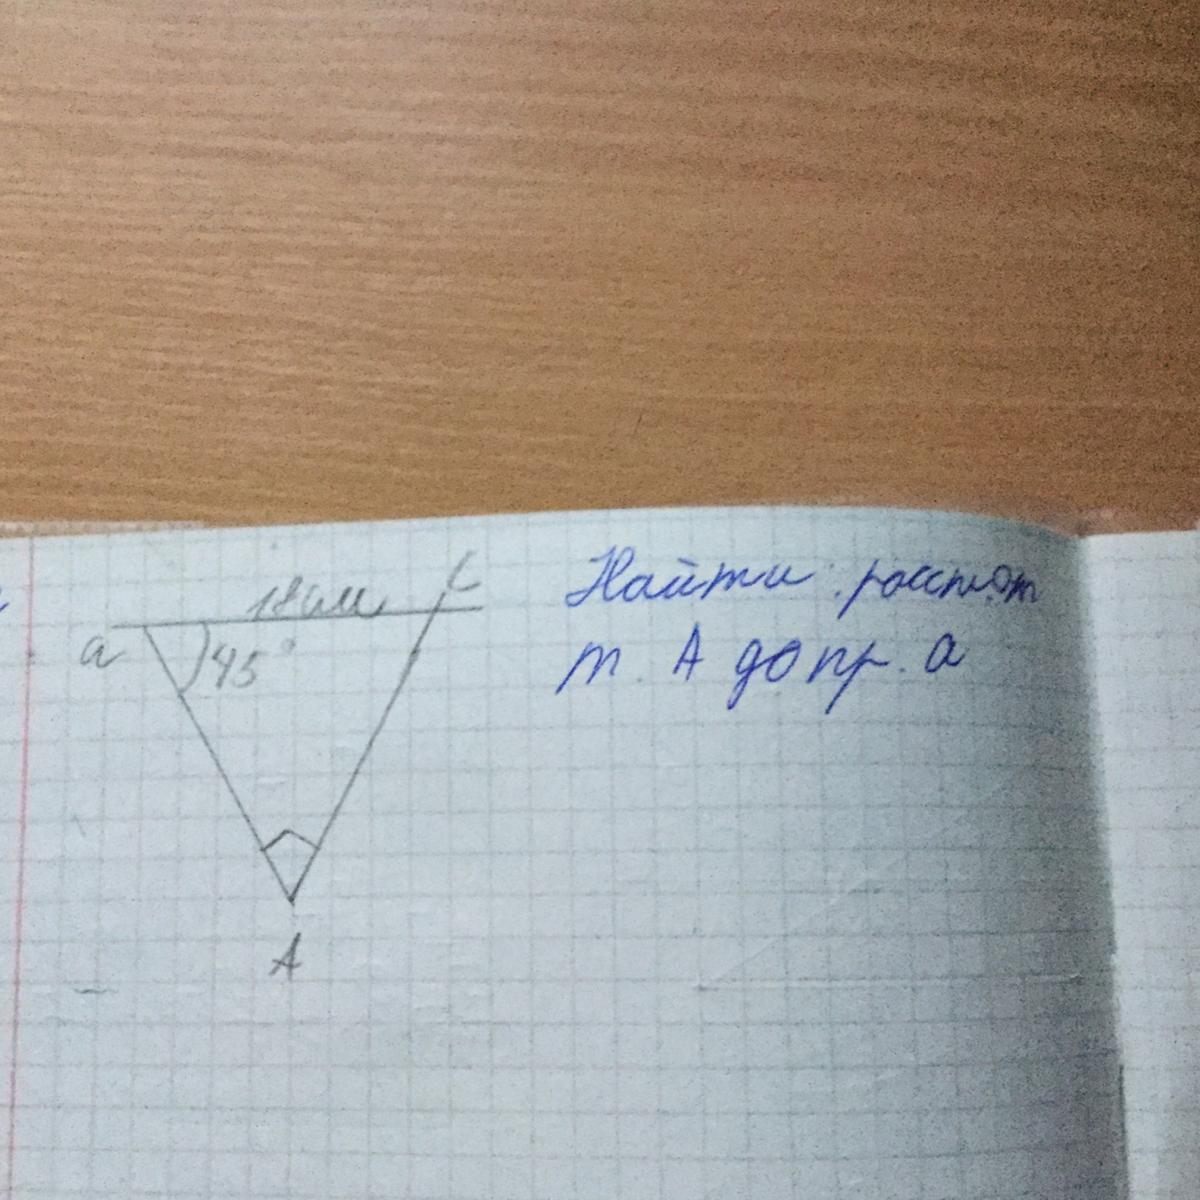 18 см
a
45°
A
Найти: расст. от
т. A до пр. a